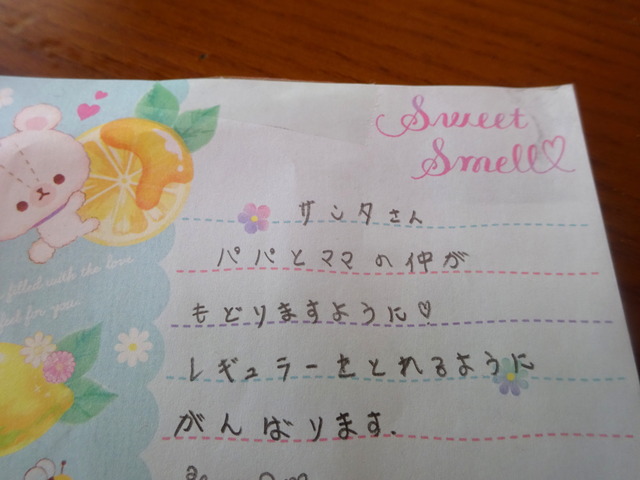 Sweet
Smell
サンタさん
パパとママの仲が
もどりますように♡
レギュラーをとれるように
がんばります.
filled with the love
for you